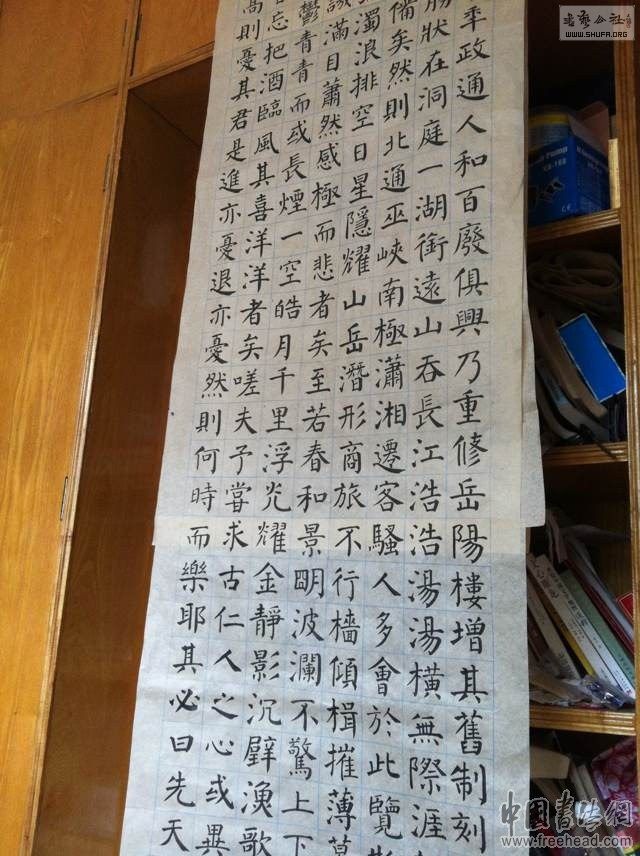 秊政通人和百廢俱興乃重修岳陽樓增其舊制刻
勝狀在洞庭一湖銜遠山吞長江浩浩湯湯橫無際涯
備矣然則北通巫峽南極瀟湘遷客騷人多會於此覽
濁浪排空日星隱耀山岳潛形商旅不行檣傾楫摧薄
譏滿目蕭然感極而悲者矣至若春和景明波瀾不驚上下
鬱青青而或長煙一空皓月千里浮光耀金靜影沉璧漁歌
忘把酒臨風其喜洋洋者矣嗟夫予嘗求古仁人之心或異
高則憂其君是進亦憂退亦憂然則何時而樂耶其必曰先天
書藝公社
WWW.SHUFA.ORG
中国書法網
www.freehead.com